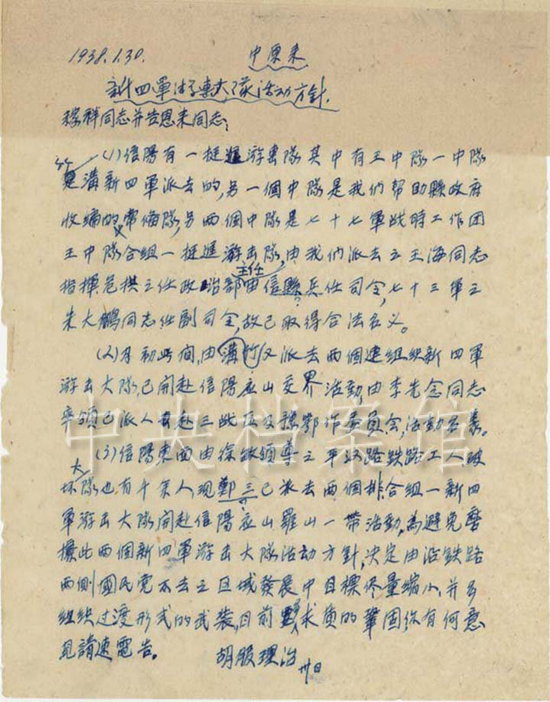 1938.1.30.
中原来
新四軍游击大隊活动方針
稼祥同志并告恩来同志：
(1)信陽有一挺進游击隊其中有三中隊一中隊
是溝新四軍派去的，另一個中隊是我們帮助縣政府
收編的常備隊，另两個中隊是七十七軍战時工作团
三中隊合組一挺進游击隊，由我們派去之王海同志
指揮危拱之任政治部主任由信縣長任司令，七十三軍之
朱大鵬同志任副司令，故已取得合法名义。
(2)月初此間，由溝竹又派去两個連組織新四軍
游击大隊，已開赴信陽应山交界活動由李先念同志
率領已派人去赴三战区及豫鄂作委員会，活動名義。
(3)信陽东西由徐敏領導之平汉路铁路工人破
坏大隊也有千余人，现鄭三已派去两個排合組一新四
軍游击大隊開赴信陽应山羅山一带活動，為避免磨
擦此两個新四軍游击大隊活动方針，决定由沿鉄路
两側國民党不去之区域發展中目標尽量缩小，并多
組织过渡形式的武装，目前要求質的鞏固你有何意
見請速電告。
胡服理治
卅日
中央档案馆